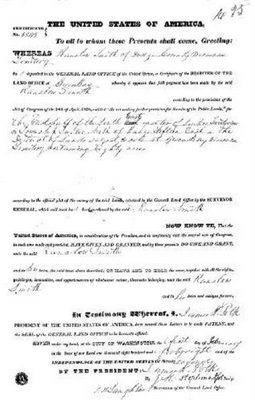 No 95
THE UNITED STATES OF AMERICA,
CERTIFICATE
No.
To all to whom these Presents shall come, Greeting:
WHEREAS Smith of Dodge County Wisconsin
Territory
ha deposited in the GENERAL LAND OFFICE of the United States, a Certificate of the REGISTER OF THE
LAND OFFICE at Green Bay whereby it appears that full payment has been made by the said
Smith according to the provisions of the
Act of Congress of the 24th of April, 1820, entitled "An act making further provision for the sale of the Public Lands," for
The half of the South East quarter of Section
in Township of Range fifteen East in the
District of Lands subject to sale at Green Bay Wisconsin
Territory containing Eighty acres
according to the official plat of the survey of the said Lands, returned to the General Land Office by the SURVEYOR
GENERAL, which said tract has been purchased by the said Smith
NOW KNOW YE, That the
United States of America, in consideration of the Premises, and in conformity with the several acts of Congress,
in such case made and provided, HAVE GIVEN AND GRANTED, and by these presents DO GIVE AND GRANT,
unto the said Smith
and to his heirs, the said tract above described: TO HAVE AND TO HOLD the same, together with all the rights,
privileges, immunities, and appurtenances of whatsoever nature, thereunto belonging, unto the said
Smith and to his heirs and assigns forever.
In Testimony Whereof, I, James K. Polk
PRESIDENT OF THE UNITED STATES OF AMERICA, have caused these Letters to be made PATENT, and
the SEAL of the GENERAL LAND OFFICE to be hereunto affixed.
GIVEN under my hand, at the CITY OF WASHINGTON, the first day of February
in the Year of our Lord one thousand eight hundred and forty eight and of the
INDEPENDENCE OF THE UNITED STATES the
BY THE PRESIDENT: James K. Polk
By J. K. Stephens Sec'y.
S. H. Laughlin RECORDER of the General Land Office.